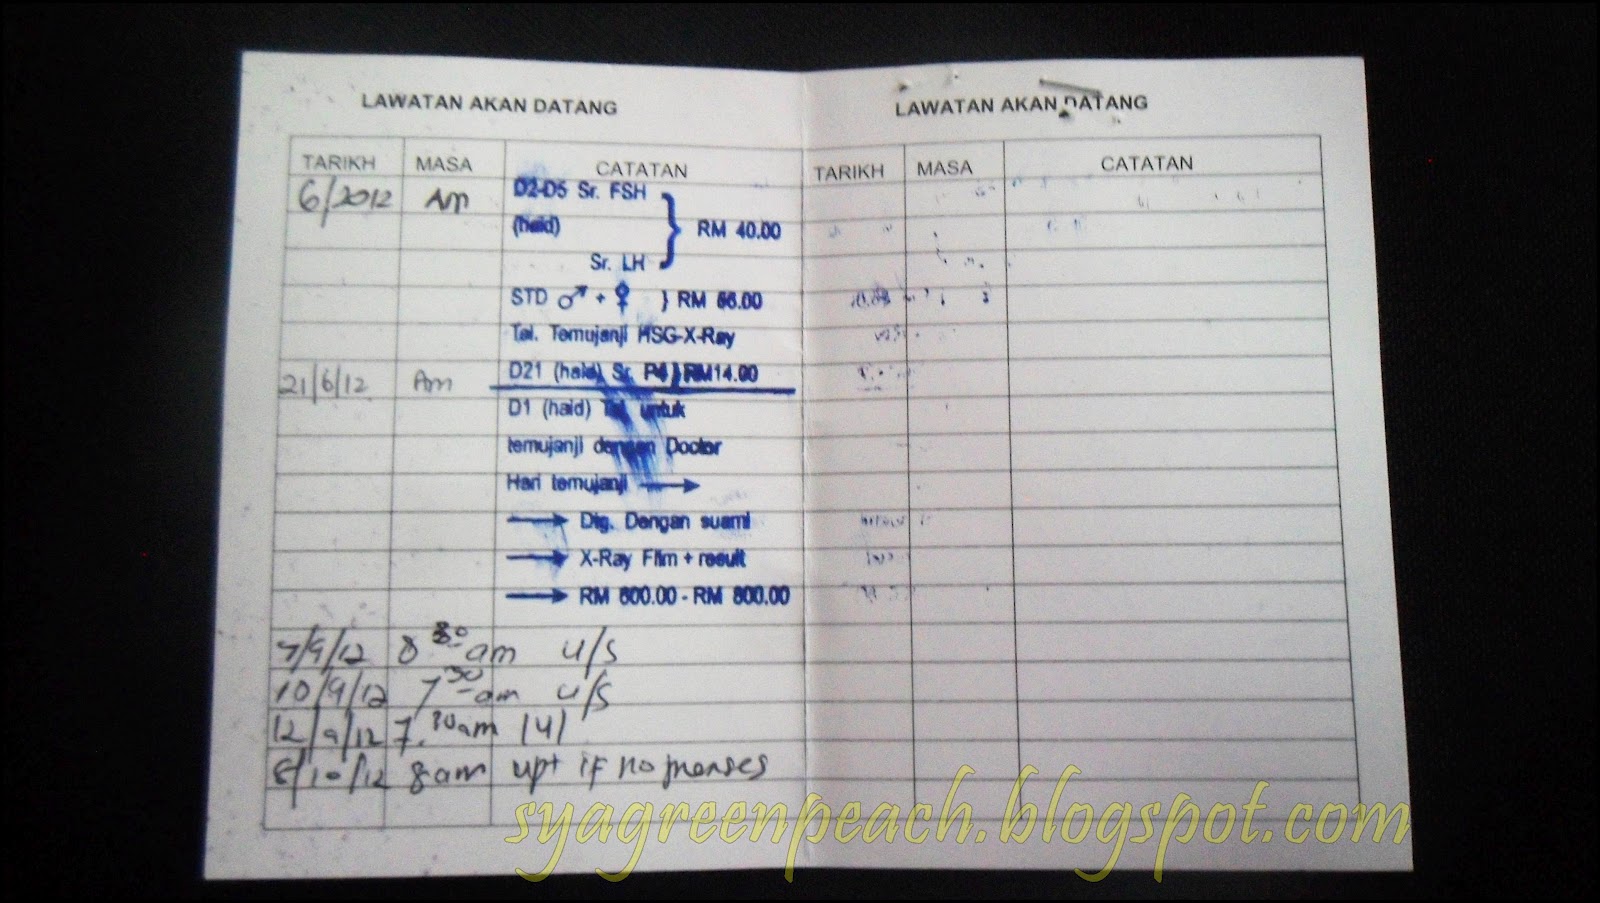 LAWATAN AKAN DATANG
TARIKH MASA CATATAN
6/2012 Am D2-D5 Sr. FSH
(haid) } RM 40.00
Sr. LH
STD ♂ + ♀ } RM 56.00
Tel. Temujanji HSG-X-Ray
21/6/12 Am D21 (haid) Sr. P4 } RM14.00
D1 (haid) Tel. untuk
temujanji dengan Doctor
Hari temujanji →
→ Dtg. Dengan suami
→ X-Ray Film + result
→ RM 600.00 - RM 800.00
7/9/12 8 30 am u/s
10/9/12 7 30 am u/s
12/9/12 7.30am IUI
8/10/12 8am upt if no menses
LAWATAN AKAN DATANG
TARIKH MASA CATATAN
syagreenpeach.blogspot.com